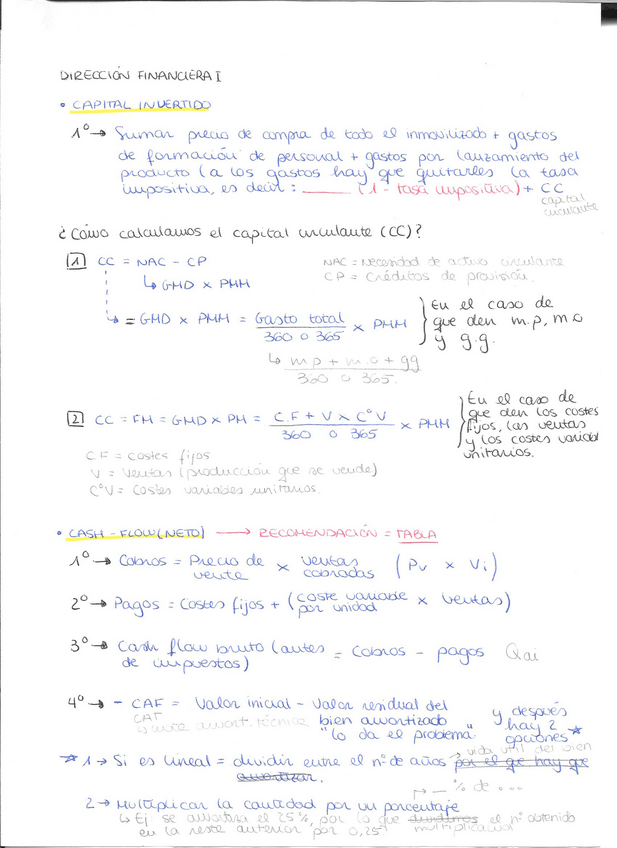 DIRECCIÓN FINANCIERA I
• CAPITAL INVERTIDO
1º → Sumar precio de compra de todo el inmovilizado + gastos
de formación de personal + gastos por lanzamiento del
producto (a los gastos hay que quitarles la tasa
impositiva, es decir: ______ (1 - tasa impositiva) + CC
capital
circulante
¿Cómo calculamos el capital circulante (CC)?
1 CC = NAC - CP
NAC = Necesidad de activo circulante
CP = Créditos de provisión.
↳ GMD x PMM
↳ = GMD x PMM = Gasto total / 360 o 365 x PMM
En el caso de
que den m.p, m.o
y g.g.
↳ mp + m.o + gg / 360 o 365.
2 CC = FM = GMD x PM = C.F + V x CºV / 360 o 365 x PMM
En el caso de
que den los costes
fijos, las ventas
y los costes variabl
unitarios.
CF = costes fijos
V = Ventas (producción que se vende)
CºV = Costes variables unitarios.
• CASH - FLOW (NETO) → RECOMENDACIÓN = TABLA
1º → Cobros = Precio de venta x ventas cobradas (Pv x Vi)
2º → Pagos = Costes fijos + (coste variable por unidad x ventas)
3º → Cash flow bruto (antes = Cobros - pagos Qai
de impuestos)
4º → - CAF = Valor inicial - Valor residual del
CAT
bien amortizado
"lo da el problema"
y después
hay 2
opciones *
amort. técnica
* 1 → Si es lineal = dividir entre el nº de años por el que hay que
amortizar.
→ vida útil del bien
→ _ % de ...
2 → Multiplicar la cantidad por un porcentaje
↳ Ej se amortiza el 25%, por lo que dividimos el nº obtenido
multiplicamos
en la resta anterior por 0,25